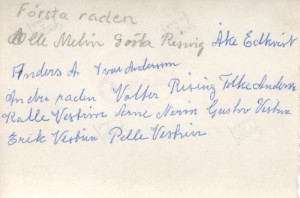 Första raden
Olle Melin Gösta Rising Åke Edkvist
Anders A Ivar Andersson
Andra raden Valter Rising Folke Anders
Kalle Vestin Arne Norin Gustav Vestin
Erik Vestin Pelle Vestin